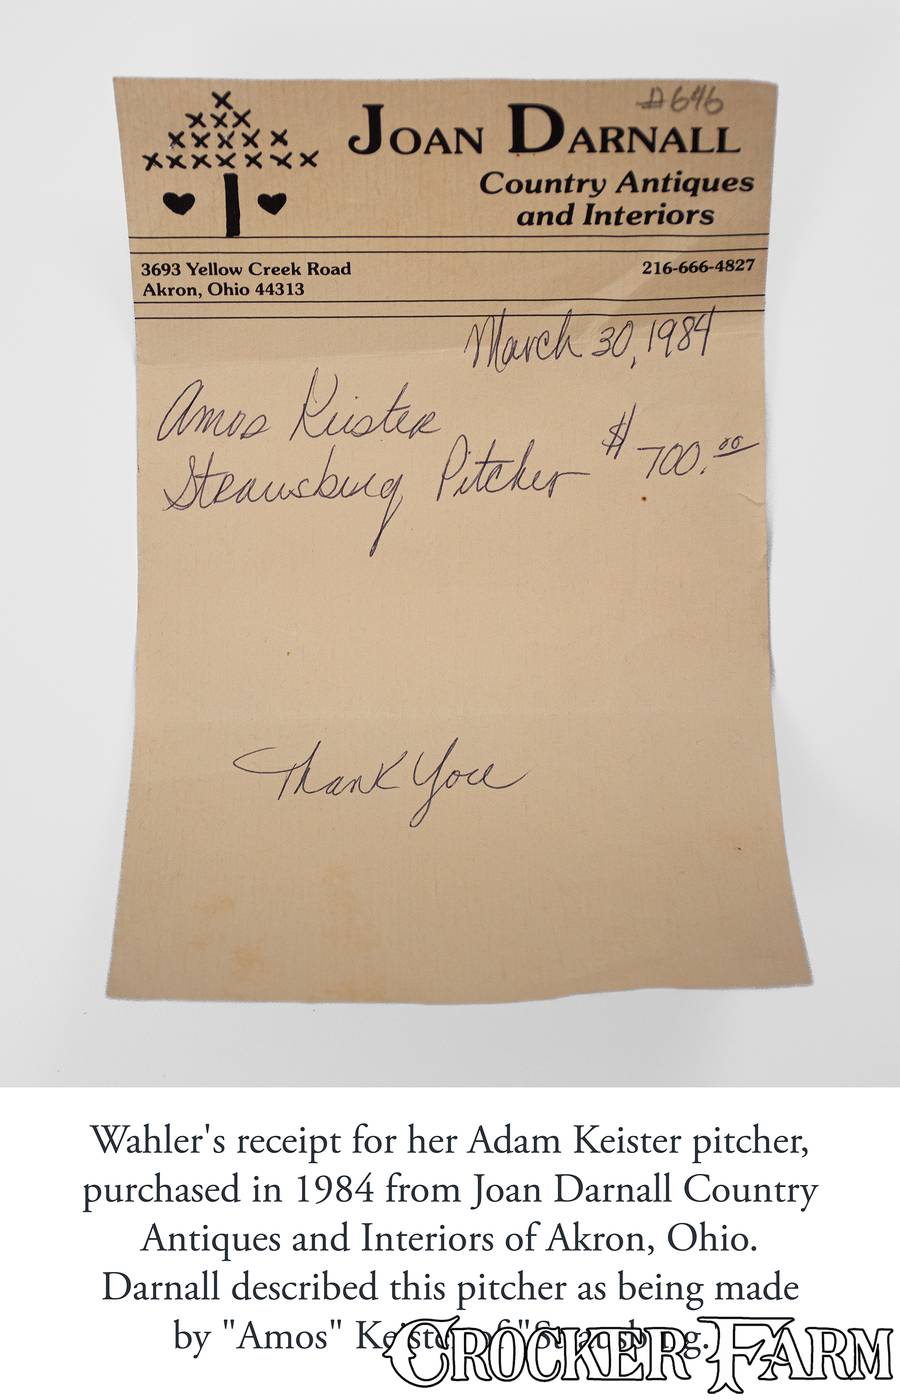 #646
JOAN DARNALL
Country Antiques
and Interiors
3693 Yellow Creek Road
Akron, Ohio 44313
216-666-4827
March 30, 1984
Amos Keister
Strausburg Pitcher $700.00
Thank You
Wahler's receipt for her Adam Keister pitcher,
purchased in 1984 from Joan Darnall Country
Antiques and Interiors of Akron, Ohio.
Darnall described this pitcher as being made
by "Amos" Keister of
CROCKER FARM